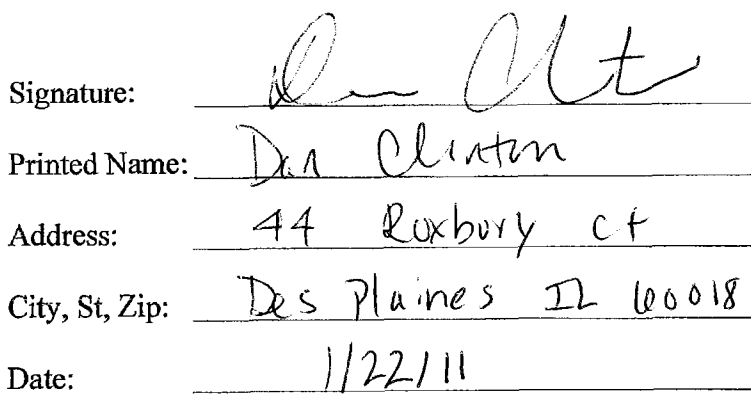 Signature: Dan Clinton
Printed Name: Dan Clinton
Address: 44 Roxbury ct
City, St, Zip: Des Plaines IL 60018
Date: 1/22/11